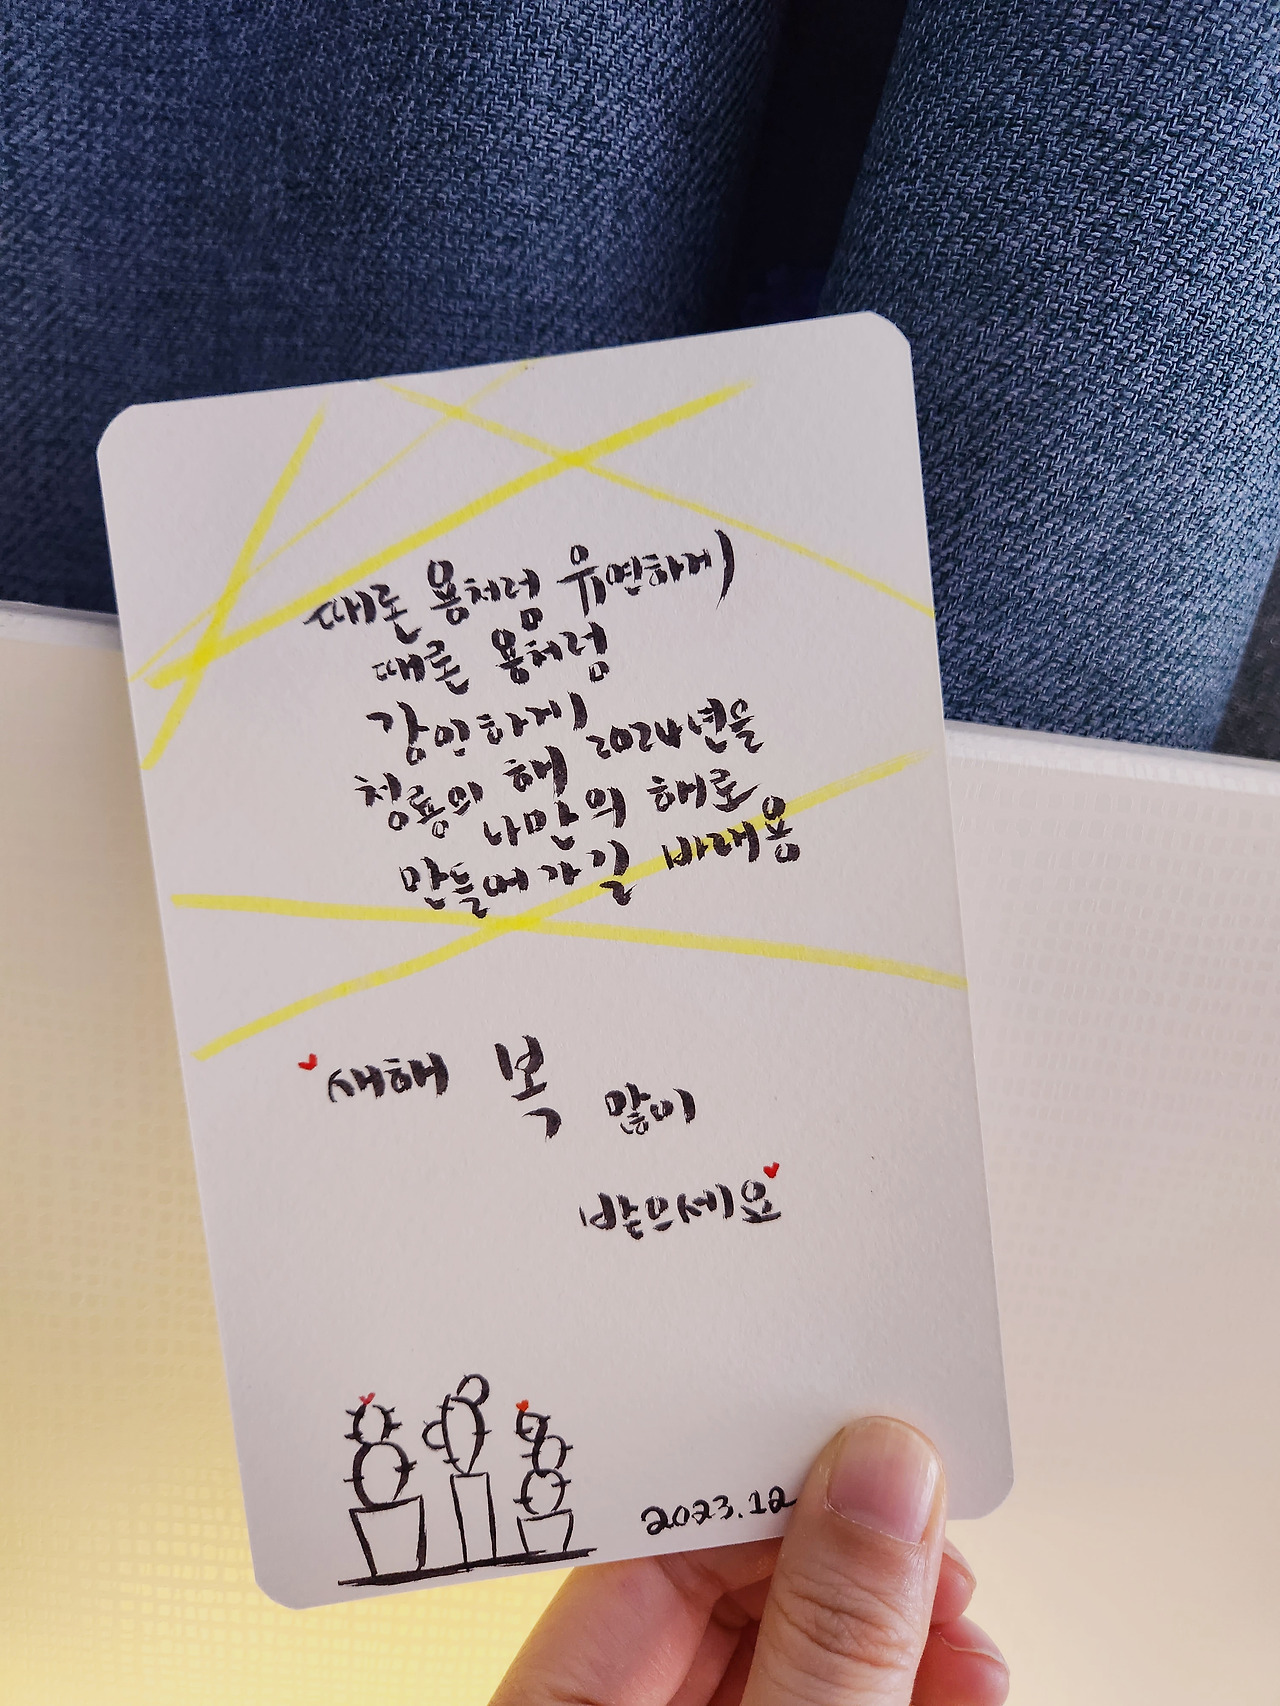 때론 용처럼 유연하게
때론 용처럼
강인하게
청룡의 해 2024년을
나만의 해로
만들어가길 바래용
새해 복 많이
받으세요
2023.12